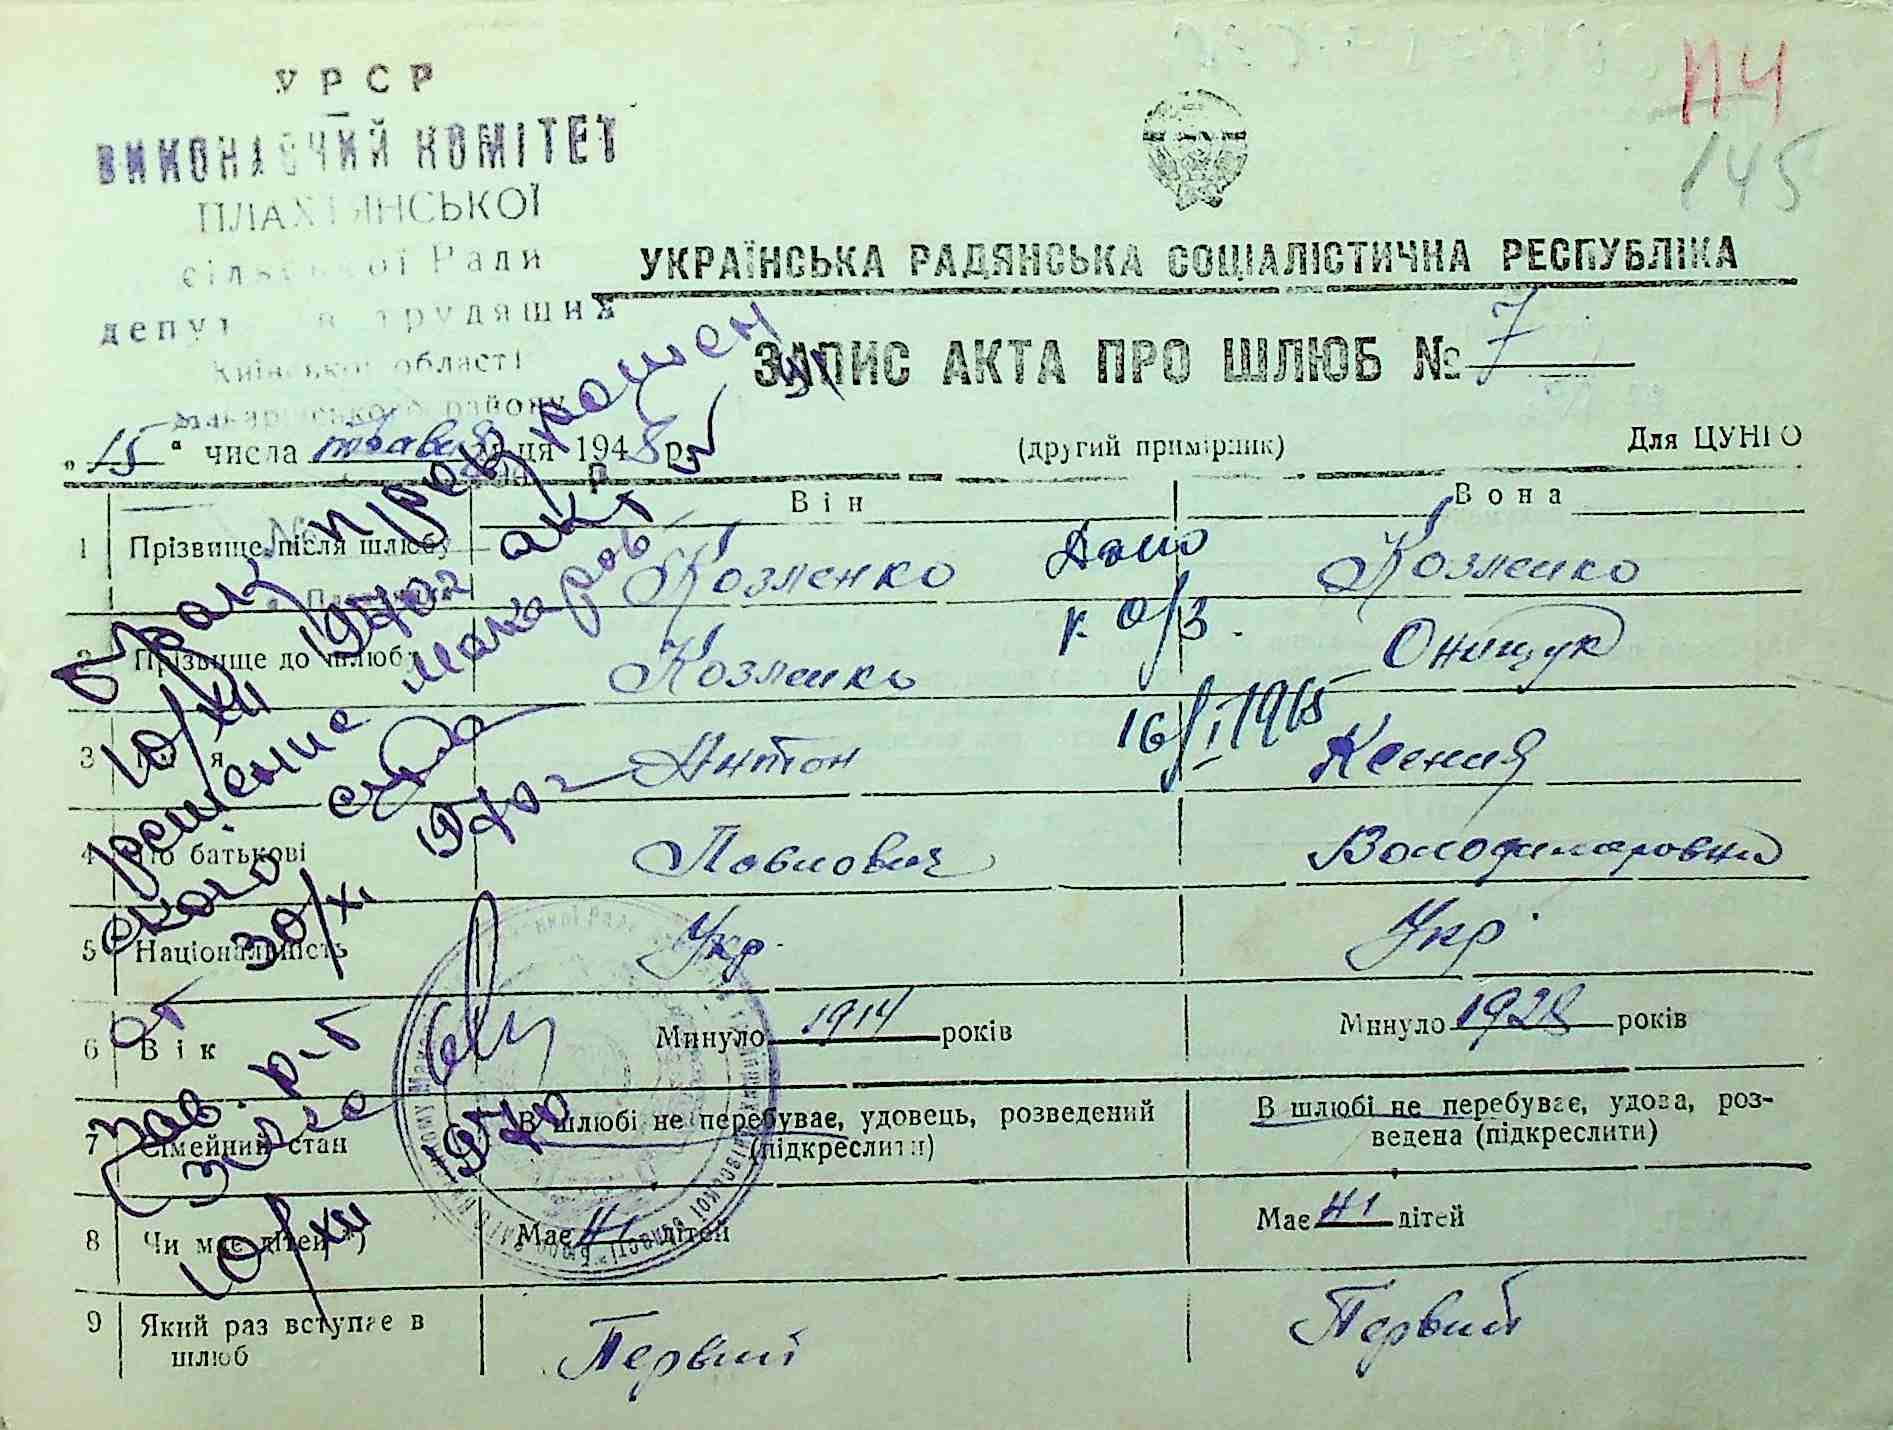 УРСР
ВИКОНАВЧИЙ КОМІТЕТ
ПЛАХТЯНСЬКОЇ
сільської Ради
депутатів трудящих
Київської області
Макарівського району
114
145
УКРАЇНСЬКА РАДЯНСЬКА СОЦІАЛІСТИЧНА РЕСПУБЛІКА
ЗАПИС АКТА ПРО ШЛЮБ № 7
„15“ числа травня м-ця 1948 р.
(другий примірник)
Для ЦУНГО
Він
Вона
1 Прізвище після шлюбу Козленко Козленко
2 Прізвище до шлюбу Козленко Онищук
3 Ім'я Антон Ксения
4 По батькові Павлович Володимаровна
5 Національність Укр. Укр.
6 Вік Минуло 1914 років Минуло 1928 років
7 Сімейний стан В шлюбі не перебуває, удовець, розведений (підкреслити) В шлюбі не перебуває, удова, розведена (підкреслити)
8 Чи має дітей *) Має Ні дітей Має Ні дітей
9 Який раз вступає в шлюб Первий Первий
16/I 1965
Брак
10/XII 1970г акт
решение Макаров
ского суда
от 30/XI 1970г
10/XII 1970